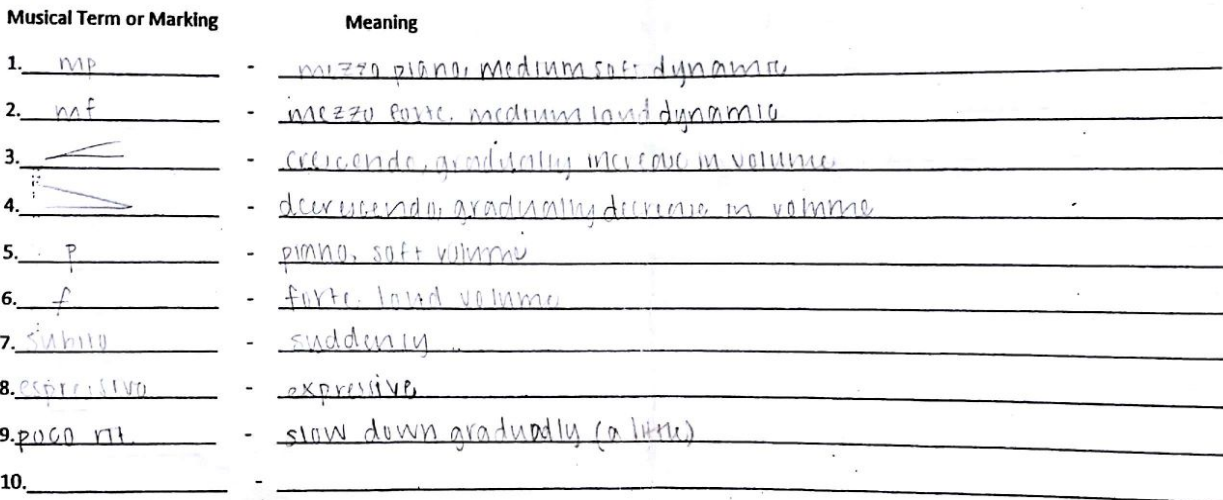 Musical Term or Marking Meaning
1. mp - mezzo piano, medium soft dynamic
2. mf - mezzo forte, medium loud dynamic
3. - crescendo, gradually increase in volume
4. - decrescendo, gradually decrease in volume
5. p - piano, soft volume
6. f - forte, loud volume
7. subito - suddenly
8. espressivo - expressive
9. poco rit. - slow down gradually (a little)
10. -